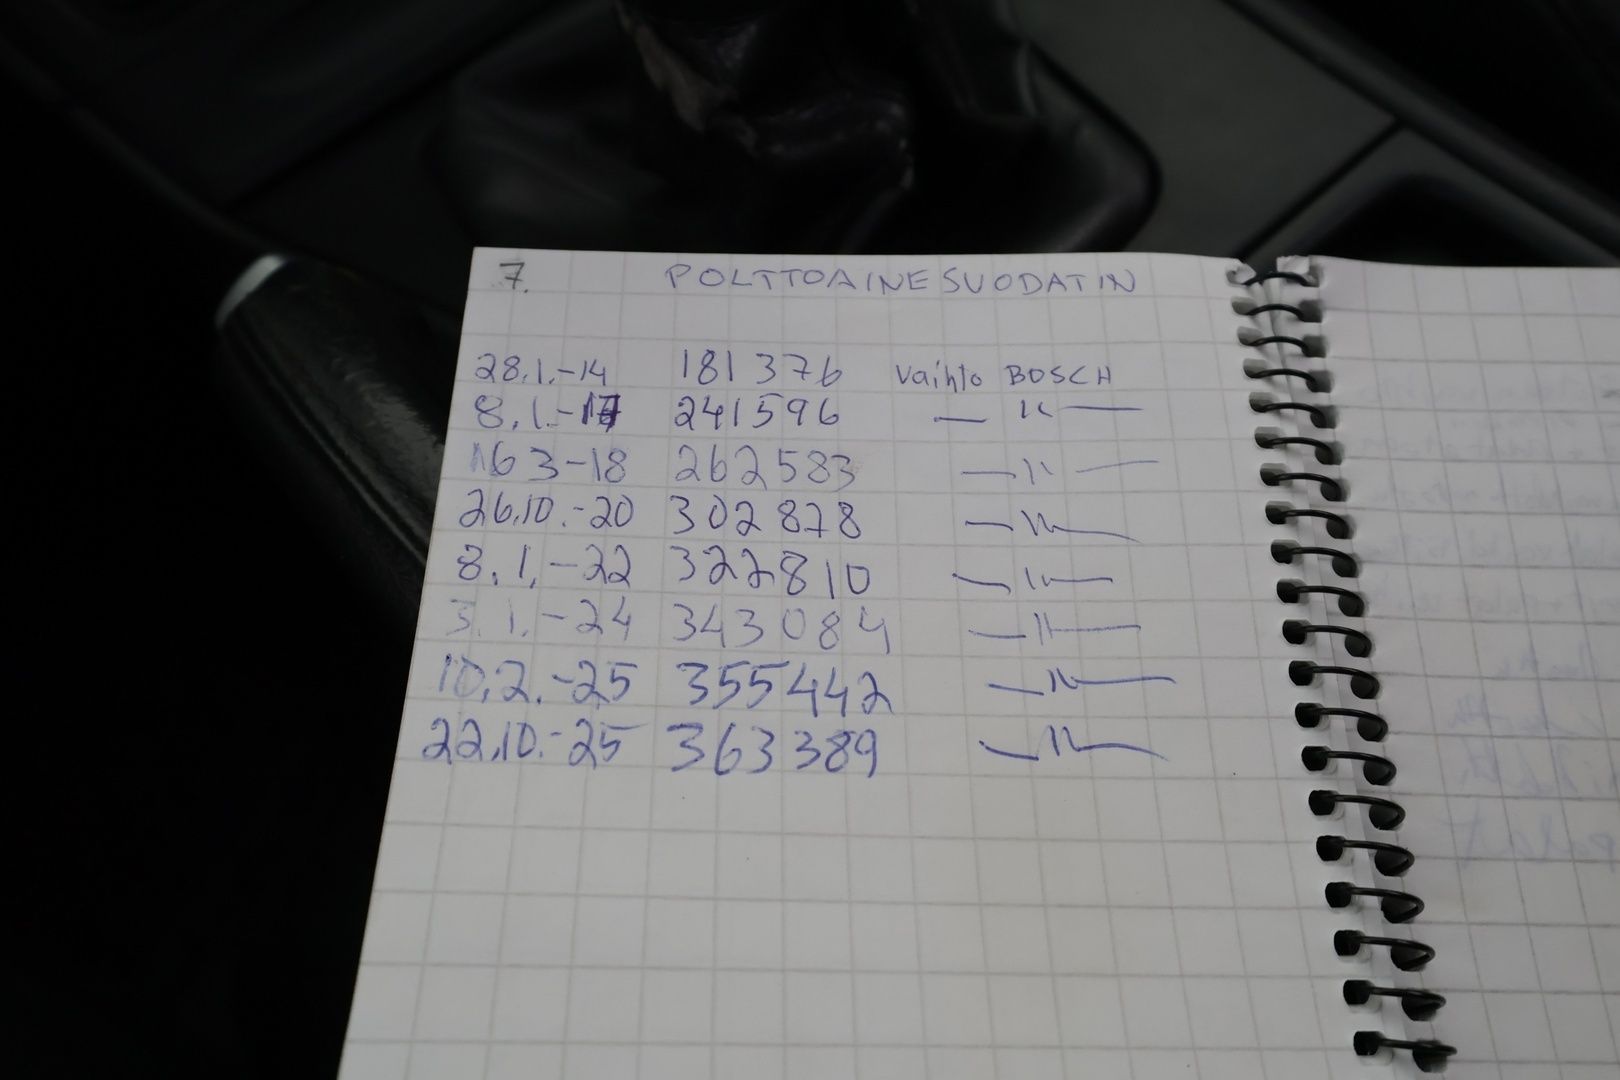 7. POLTTOAINESUODATIN
28.1.-14 181376 Vaihto BOSCH
8.1.-17 241596 — " —
16 3-18 262583 — " —
26.10.-20 302878 — " —
8.1.-22 322810 — " —
3.1.-24 343084 — " —
10.2.-25 355442 — " —
22.10.-25 363389 — " —